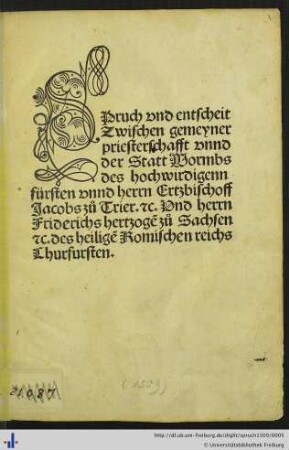 Spruch vnd entscheit
Zwischen gemeyner
priesterschafft vnnd
der Statt Wormbs
des hochwirdigenn
fürsten vnnd herrn Ertzbischoff
Jacobs zů Trier. ⁊c. Vnd herrn
Friderichs hertzogẽ zů Sachsen
⁊c. des heiligẽ Romischen reichs
Churfursten.
(1509)
http://dl.ub.uni-freiburg.de/diglit/spruch1509/0005
© Universitätsbibliothek Freiburg